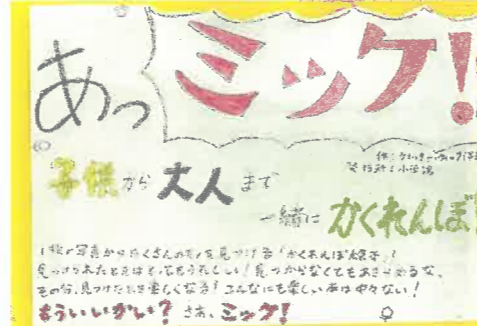 あっ
ミッケ!
子供から大人まで
作:
発行所:小学館
一緒にかくれんぼ!
1枚の写真からたくさんのものを見つける「かくれんぼ絵本」!
見つけられたときはとってもうれしい!見つからなくてもあきらめるな、
その分、見つけたとき楽しくなる!こんなにも楽しい本は中々ない!
もういいかい?さあ、ミッケ!